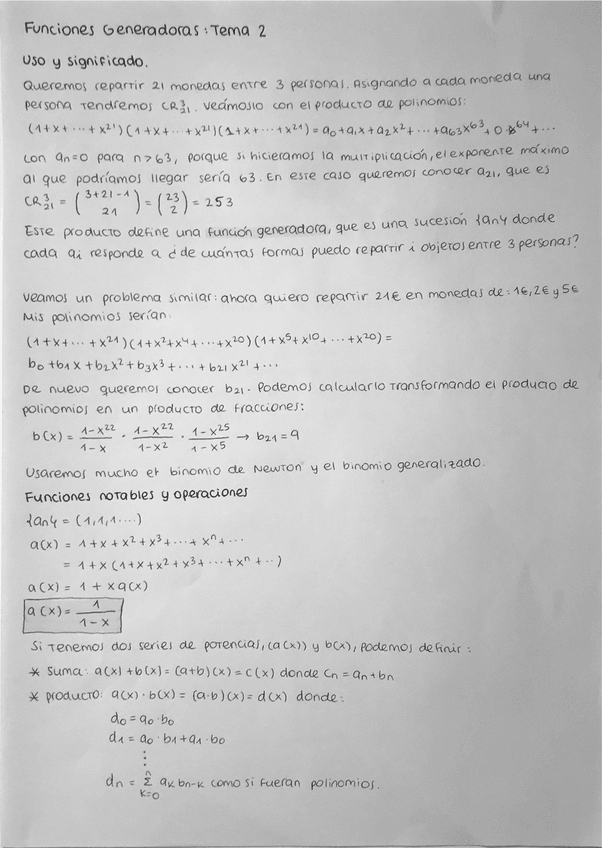 Funciones Generadoras: Tema 2
Uso y significado.
Queremos repartir 21 monedas entre 3 personas. Asignando a cada moneda una
persona tendremos CR³₂₁. Veámoslo con el producto de polinomios:
(1+x+···+x²¹)(1+x+···+x²¹)(1+x+···+x²¹) = a₀+a₁x+a₂x²+···+a₆₃x⁶³+0·x⁶⁴+···
con aₙ=0 para n>63, porque si hicieramos la multiplicación, el exponente máximo
al que podríamos llegar sería 63. En este caso queremos conocer a₂₁, que es
CR³₂₁ = (3+21-1 / 21) = (23 / 2) = 253
Este producto define una función generadora, que es una sucesión {an} donde
cada ai responde a ¿de cuántas formas puedo repartir i objetos entre 3 personas?
Veamos un problema similar: ahora quiero repartir 21€ en monedas de: 1€, 2€ y 5€
Mis polinomios serían:
(1+x+···+x²¹)(1+x²+x⁴+···+x²⁰)(1+x⁵+x¹⁰+···+x²⁰) =
b₀+b₁x+b₂x²+b₃x³+···+b₂₁x²¹+···
De nuevo queremos conocer b₂₁. Podemos calcularlo transformando el producto de
polinomios en un producto de fracciones:
b(x) = (1-x²²)/(1-x) · (1-x²²)/(1-x²) · (1-x²⁵)/(1-x⁵) → b₂₁=9
Usaremos mucho el binomio de Newton y el binomio generalizado.
Funciones notables y operaciones
{an} = (1,1,1····)
a(x) = 1+x+x²+x³+···+xⁿ+···
= 1+x(1+x+x²+x³+···+xⁿ+··)
a(x) = 1 + xa(x)
a(x) = 1/(1-x)
Si tenemos dos series de potencias, (a(x)) y b(x), podemos definir:
* Suma: a(x)+b(x)=(a+b)(x)=c(x) donde cₙ=aₙ+bₙ
* producto: a(x)·b(x)=(a·b)(x)=d(x) donde:
d₀=a₀·b₀
d₁=a₀·b₁+a₁·b₀
⋮
dₙ = Σⁿₖ₌₀ aₖbₙ₋ₖ como si fueran polinomios.